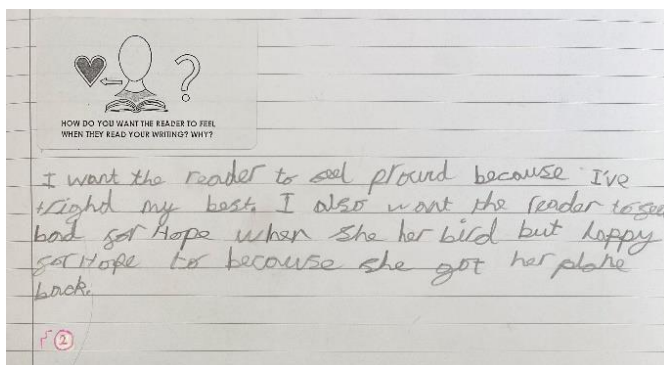 HOW DO YOU WANT THE READER TO FEEL
WHEN THEY READ YOUR WRITING? WHY?
I want the reader to feel pround because I've
trighd my best. I also want the reader to fee
bad for Hope when she her bird but happy
for Hope to because she got her plane
back.
2